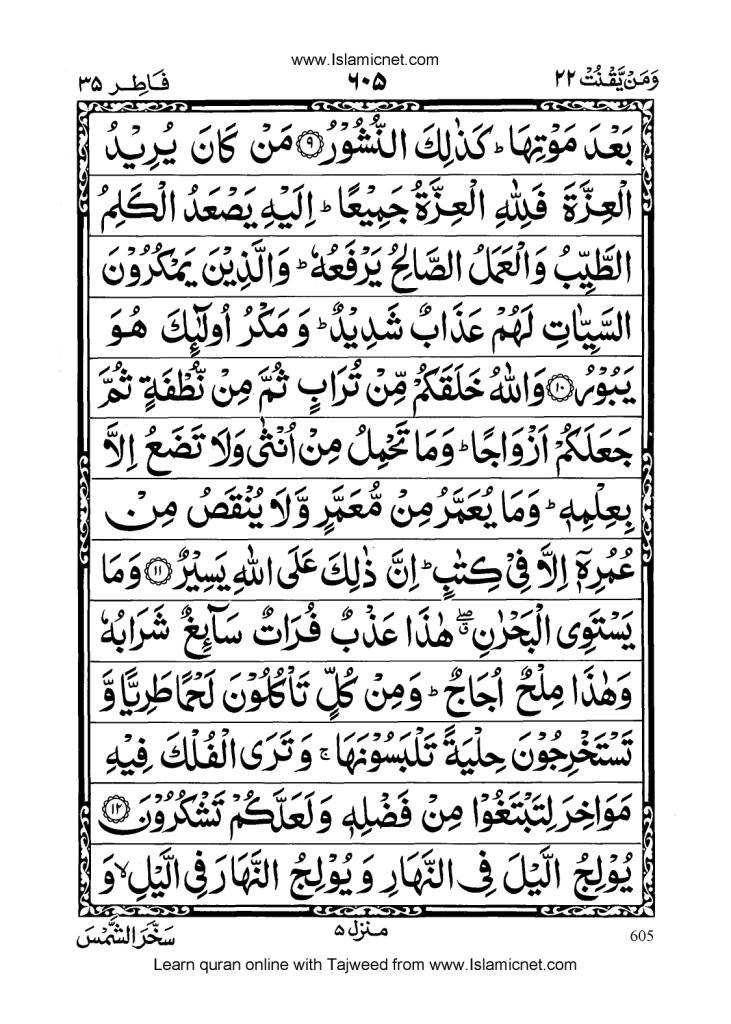 www.Islamicnet.com
وَمَنْ يَّقْنُتْ ۲۲ ٦٠٥ فَاطِر ۳۵
بَعْدَ مَوْتِهَا ؕ كَذٰلِكَ النُّشُوْرُ ۝۹ مَنْ كَانَ يُرِيْدُ
الْعِزَّةَ فَلِلّٰهِ الْعِزَّةُ جَمِيْعًا ؕ اِلَيْهِ يَصْعَدُ الْكَلِمُ
الطَّيِّبُ وَالْعَمَلُ الصَّالِحُ يَرْفَعُهٗ ؕ وَالَّذِيْنَ يَمْكُرُوْنَ
السَّيِّاٰتِ لَهُمْ عَذَابٌ شَدِيْدٌ ؕ وَ مَكْرُ اُولٰٓئِكَ هُوَ
يَبُوْرُ ۝۱۰ وَاللّٰهُ خَلَقَكُمْ مِّنْ تُرَابٍ ثُمَّ مِنْ نُّطْفَةٍ ثُمَّ
جَعَلَكُمْ اَزْوَاجًا ؕ وَمَا تَحْمِلُ مِنْ اُنْثٰى وَلَا تَضَعُ اِلَّا
بِعِلْمِهٖ ؕ وَمَا يُعَمَّرُ مِنْ مُّعَمَّرٍ وَّلَا يُنْقَصُ مِنْ
عُمُرِهٖٓ اِلَّا فِيْ كِتٰبٍ ؕ اِنَّ ذٰلِكَ عَلَى اللّٰهِ يَسِيْرٌ ۝۱۱ وَمَا
يَسْتَوِى الْبَحْرٰنِ ۖۗ هٰذَا عَذْبٌ فُرَاتٌ سَآئِغٌ شَرَابُهٗ
وَهٰذَا مِلْحٌ اُجَاجٌ ؕ وَمِنْ كُلٍّ تَاْكُلُوْنَ لَحْمًا طَرِيًّا وَّ
تَسْتَخْرِجُوْنَ حِلْيَةً تَلْبَسُوْنَهَا ۚ وَ تَرَى الْفُلْكَ فِيْهِ
مَوَاخِرَ لِتَبْتَغُوْا مِنْ فَضْلِهٖ وَ لَعَلَّكُمْ تَشْكُرُوْنَ ۝۱۲
يُوْلِجُ الَّيْلَ فِى النَّهَارِ وَ يُوْلِجُ النَّهَارَ فِى الَّيْلِ ۙ وَ
سَخَّرَ الشَّمْسَ منزل ۵ 605
Learn quran online with Tajweed from www.Islamicnet.com